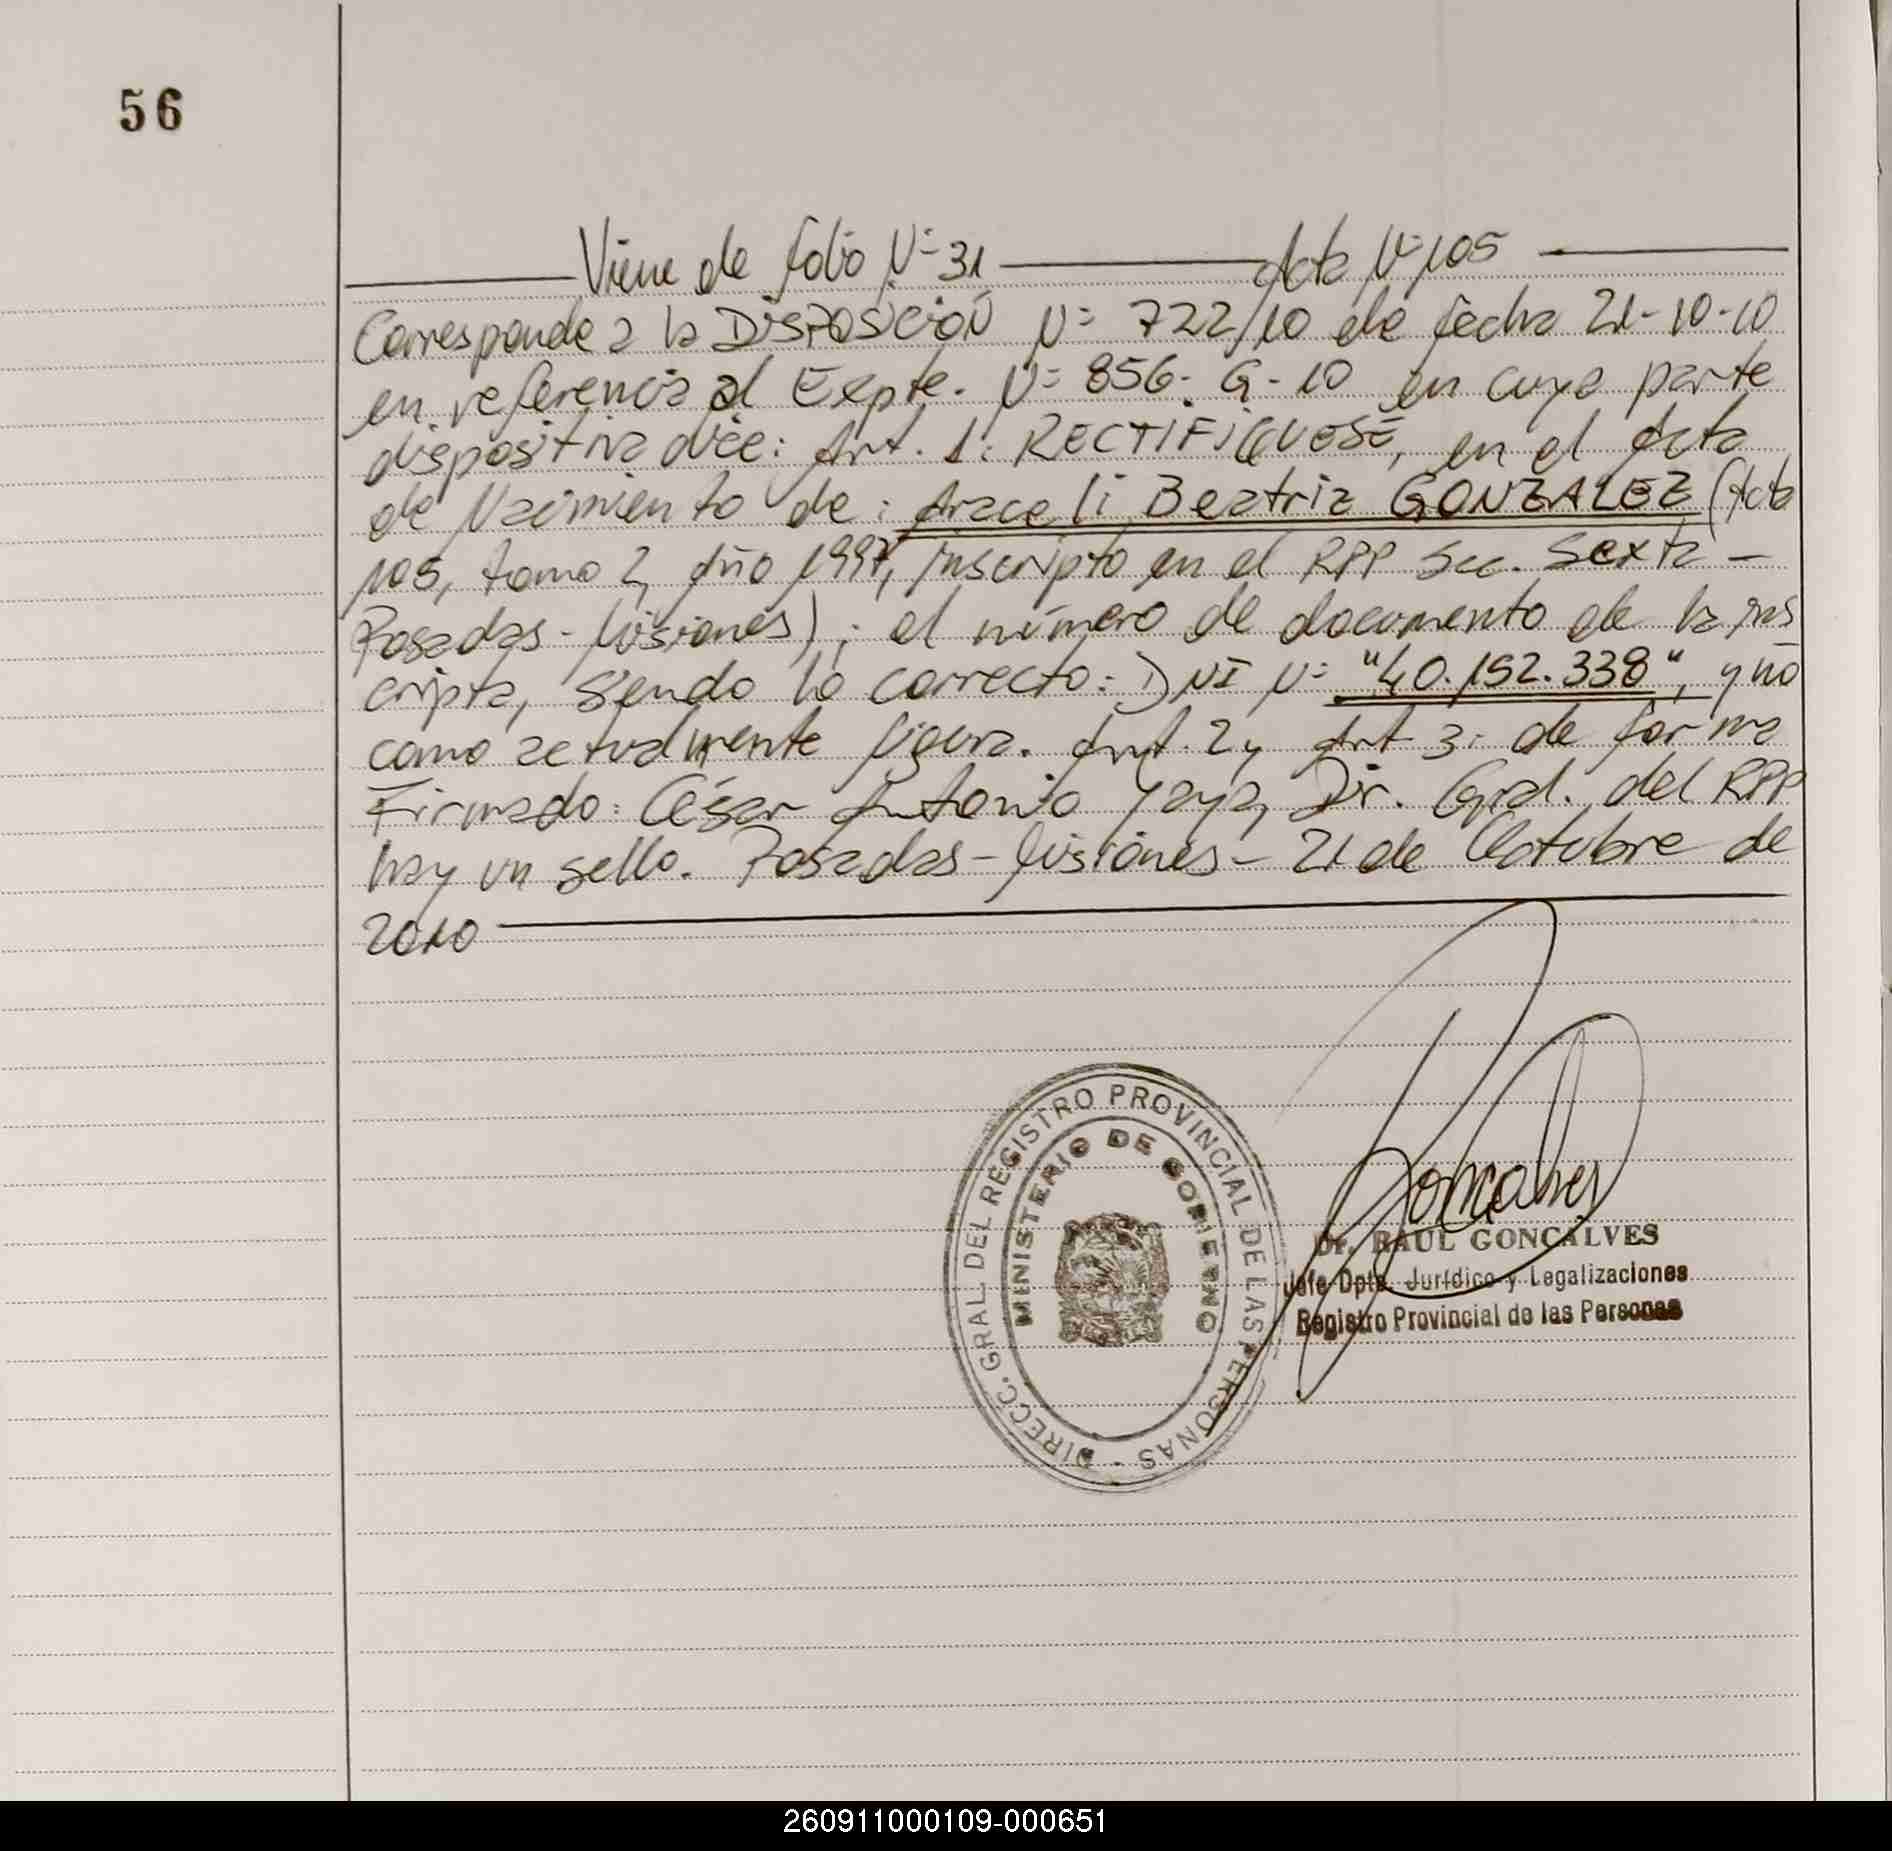 56
Viene de folio N= 31 Acta N= 105
Corresponde a la DISPOSICIÓN N= 722/10 de fecha 21-10-10
en referencia al Expte. N= 856-G-10 en cuya parte
dispositiva dice: Art. 1: RECTIFIQUESE, en el Acta
de Nacimiento de: Araceli Beatriz GONZALEZ (Acta
105, tomo 2, Año 1997, inscripto en el RPP Sec. Sexta -
Posadas - Misiones); el número de documento de la ins
cripta, siendo lo correcto: DNI N= "40.152.338", y no
como actualmente figura. Art. 2 y Art 3: de forma
Firmado: César Antonio Yaya, Dir. Gral. del RPP
hay un sello. Posadas - Misiones - 21 de Octubre de
2010
DIRECC. GRAL. DEL REGISTRO PROVINCIAL DE LAS PERSONAS -
MINISTERIO DE GOBIERNO
Goncalves
Dr. RAUL GONCALVES
Jefe Dpto. Jurídico y Legalizaciones
Registro Provincial de las Personas
260911000109-000651